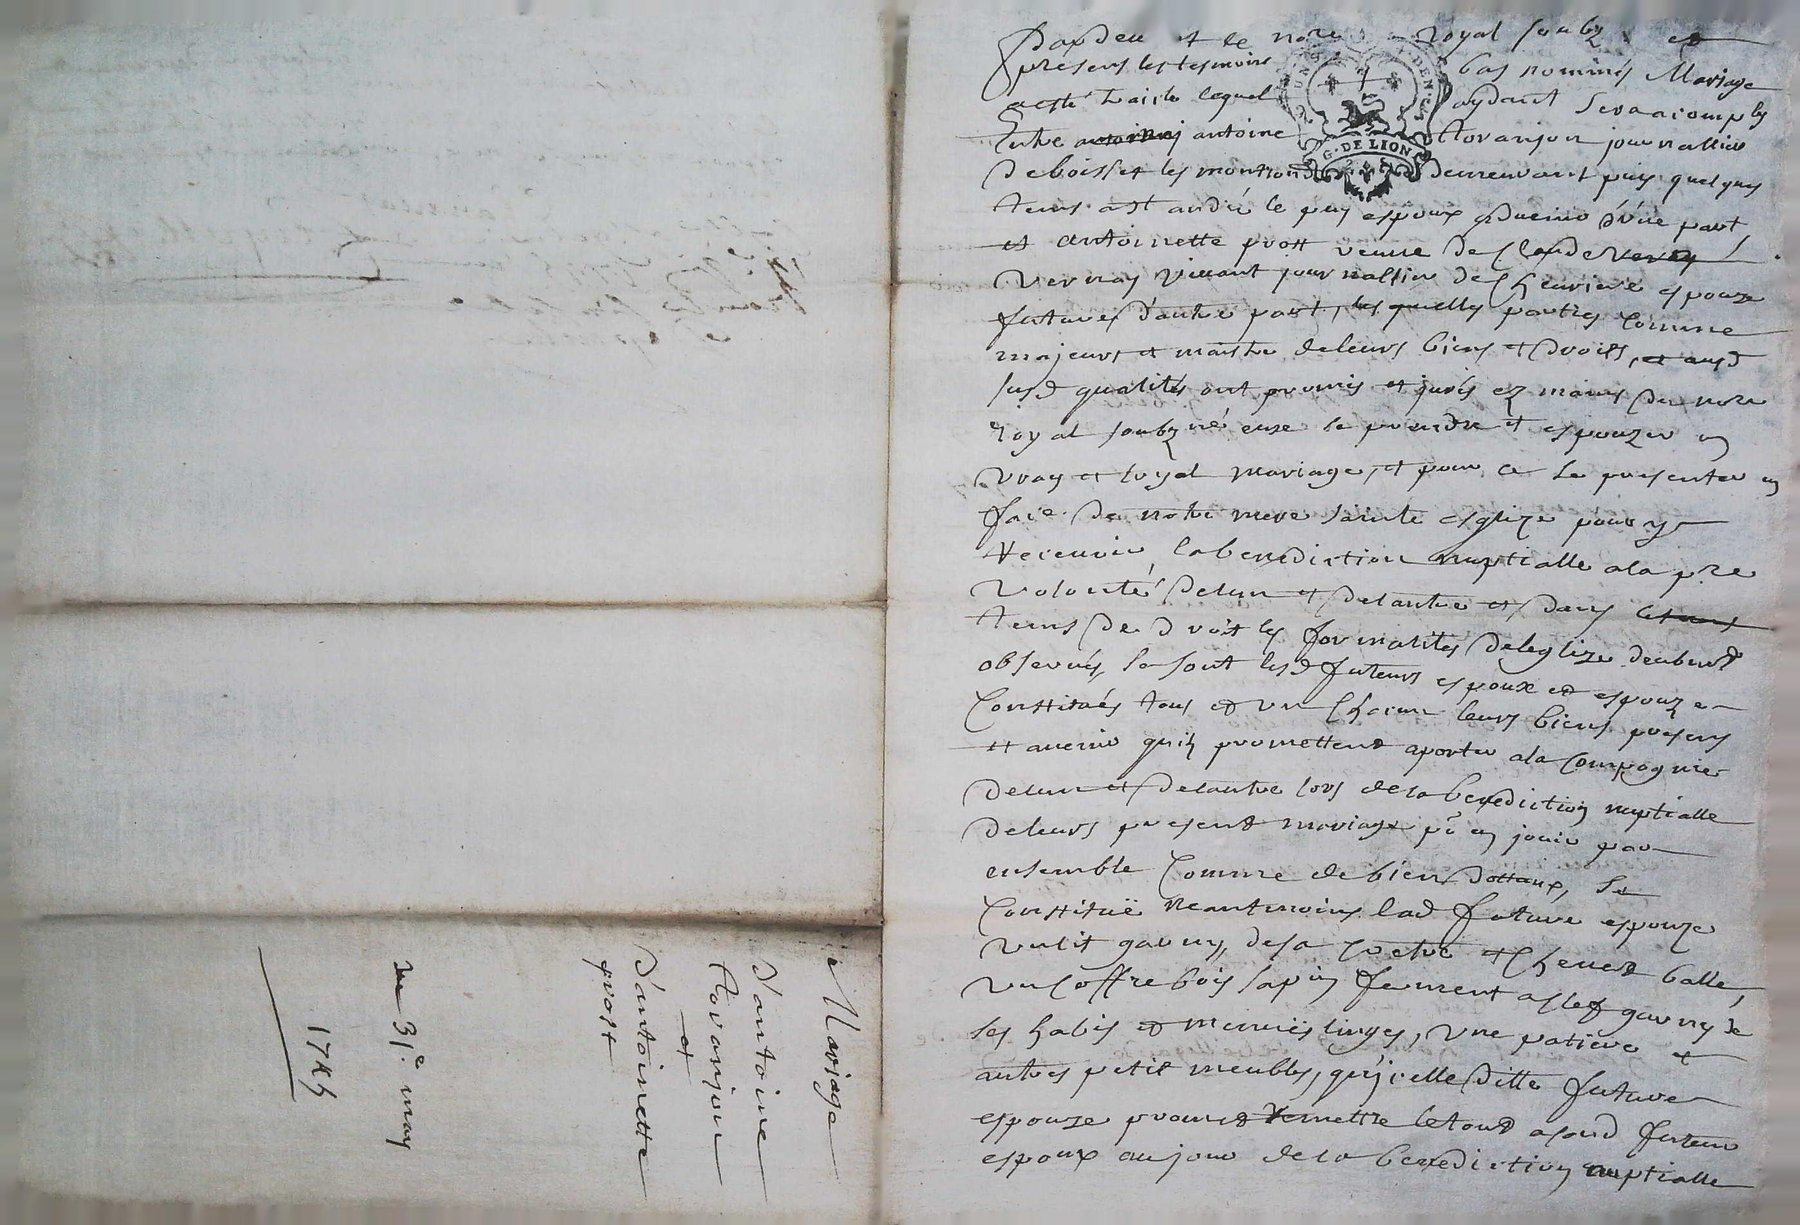 Mariage
d'antoine
Rovanjon
et
d'antoinette
prost
du 31e may
Pardeu et le nore royal soubz et
presens les tesmoins bas nommés Mariage
a esté traicté lequel aydant sera acomply
Entre antoine Rovanjon journallier
de boisset les montrond demeurant puis quelques
tems a st andré le puy espoux advenir d'une part,
et antoinette prost veuve de Claude verny
vernay vivant journallier de Cheuriere espouze
future d'autre part, lesquelles parties Comme
majeurs et maistre de leurs biens et droits, et
susd qualités ont promis et jurés ez mains du nore
royal soubzné euxe se prendre et espouzer en
vray et loyal mariage, et pour ce se presenter en
face de notre mere sainte esglize pour y
recevoir la benediction nuptialle a la pre
volonté de lun et de lautre et dans
tems de droit les formalites de leglize deubmt
observés, se sont lesd futeurs espoux et espouze
Constitués tous et un Chacun leurs biens presens
et avenir quils promettent aporter a la Compagnie
de lun et de lautre lors de la benediction nuptialle
de leurs present mariage pr en jouir par
ensemble Comme de bien dottaux, se
Constitüe neantmoins lad future espouze
un lit garny, de sa Coetre et Chevet balle,
un Coffre bois sapin fermant a clef garny de
ses habis et menües linges, une patiere et
autres petit meubles, qu'jcelle ditte future
espouze promet remettre le tout a sond futeur
espoux au jour de la benediction nuptialle
G. DE LION